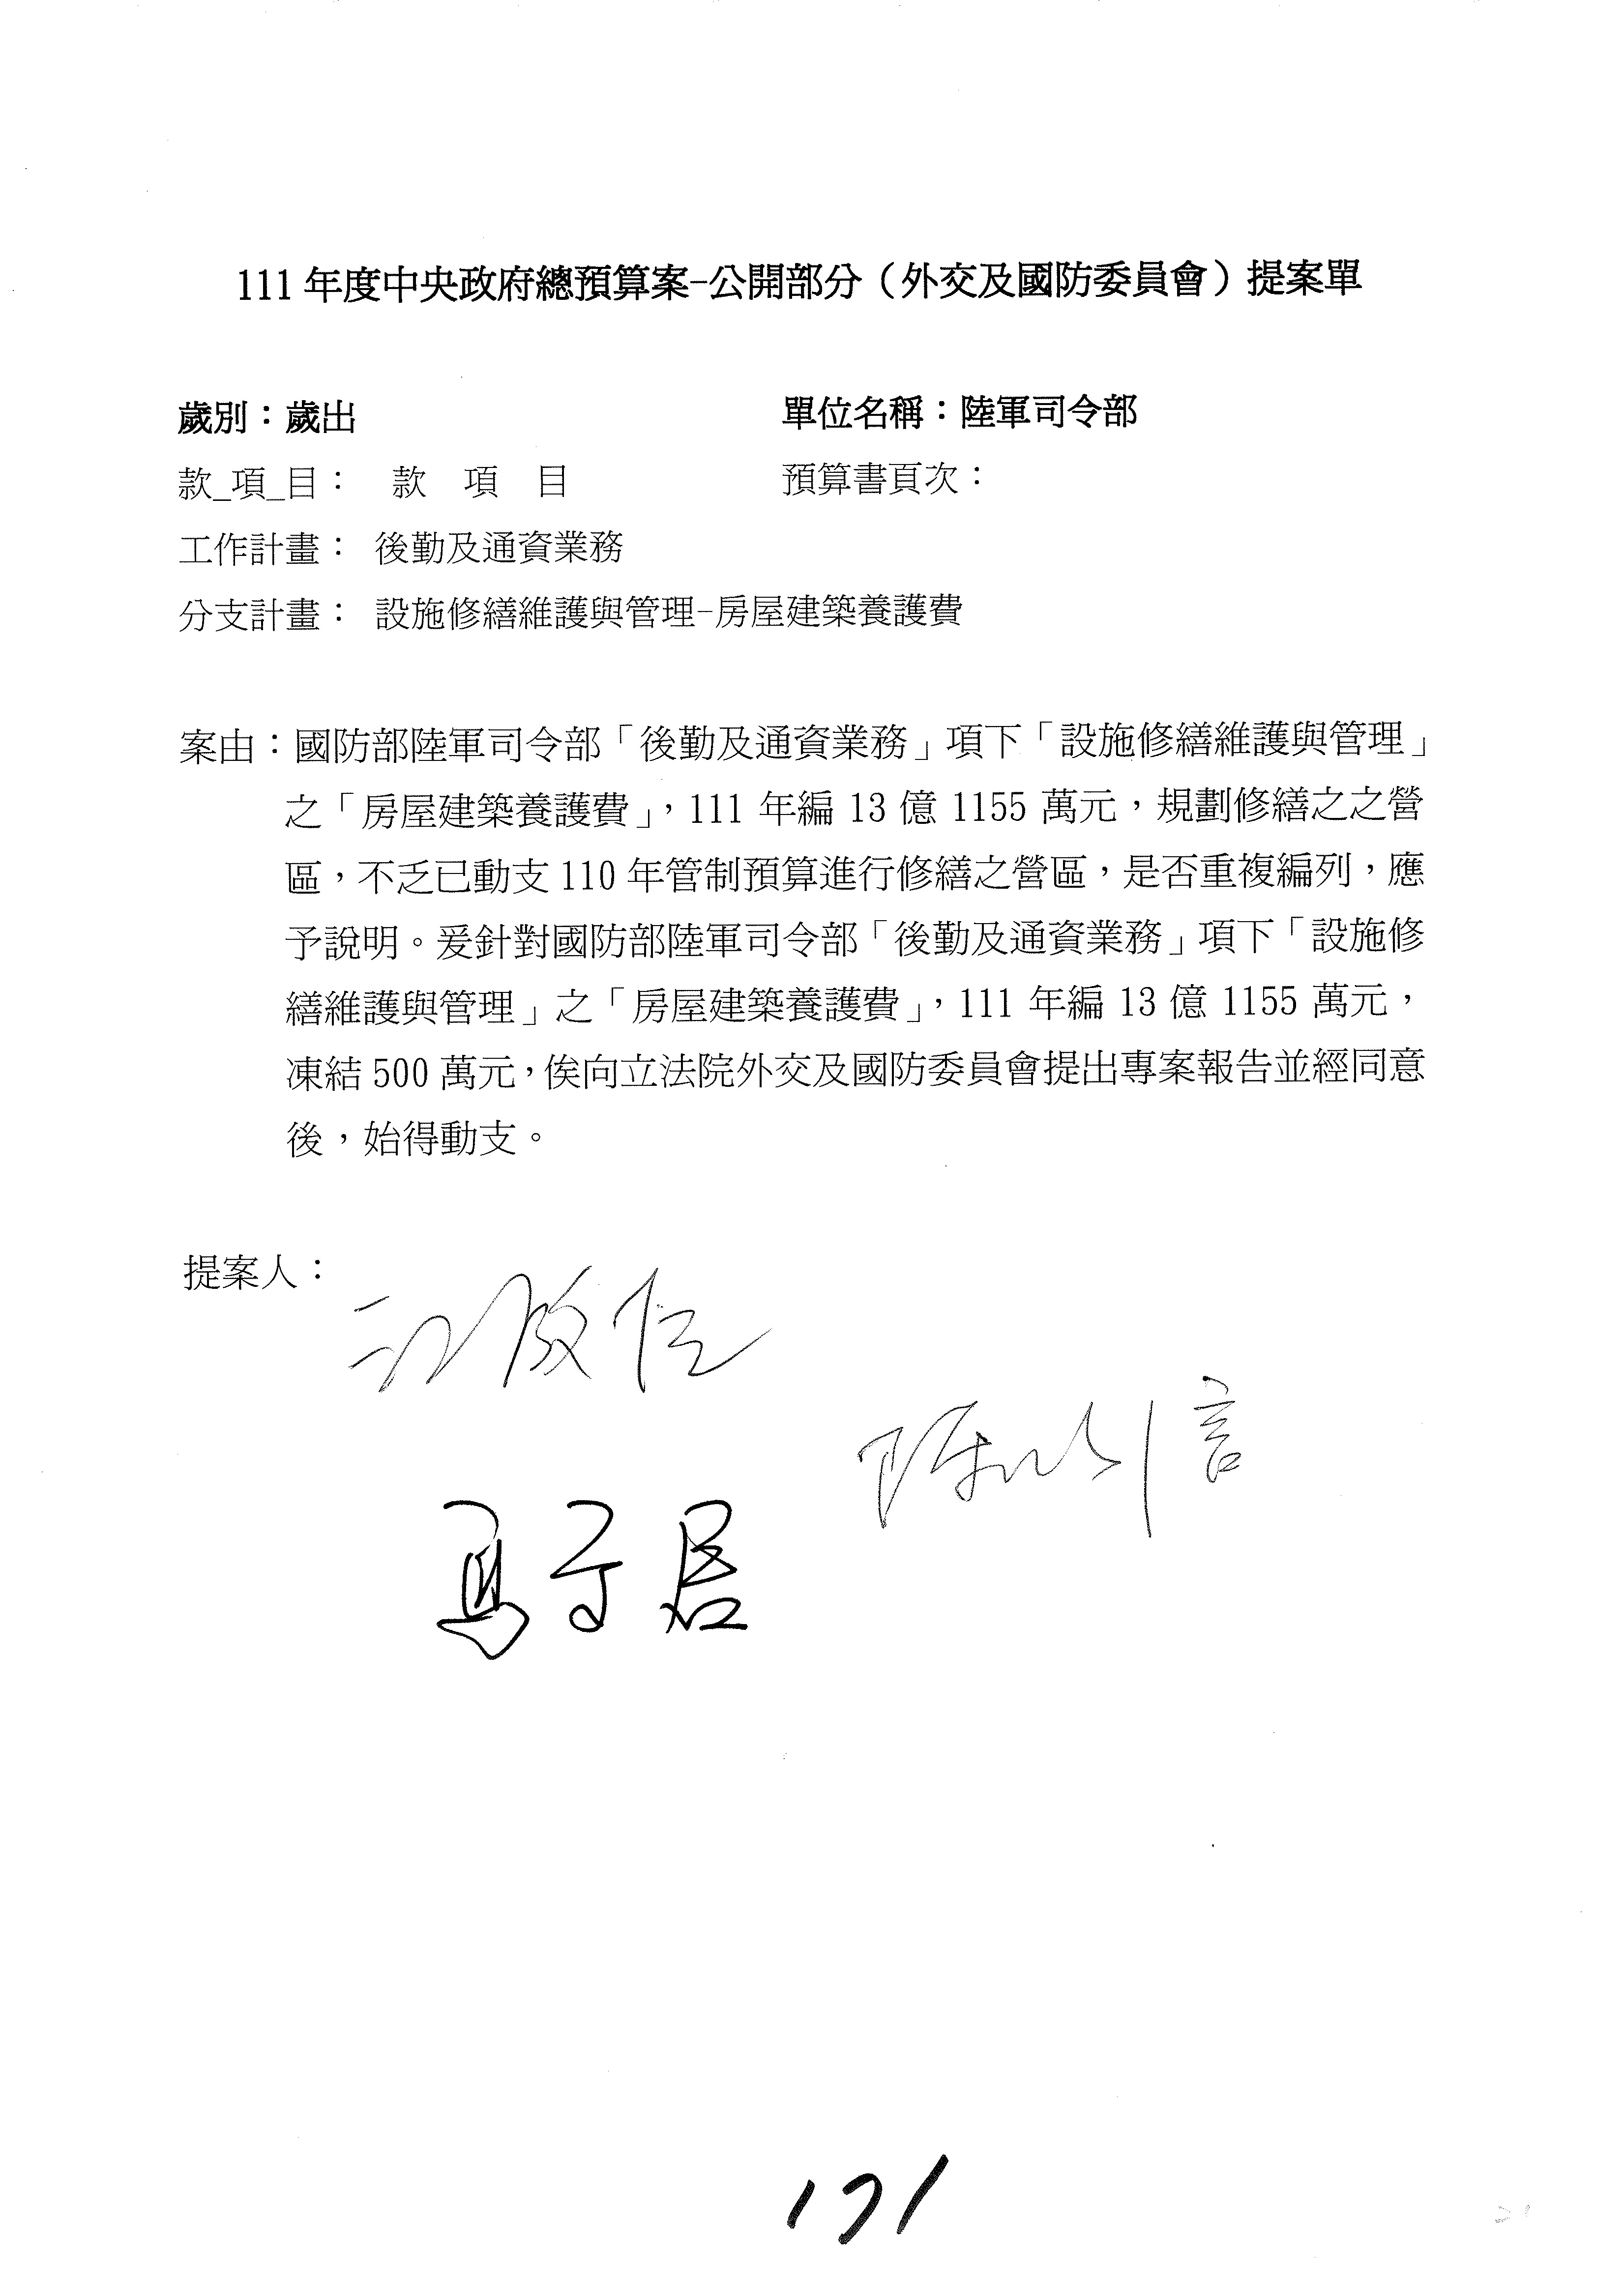 111 年度中央政府總預算案-公開部分（外交及國防委員會）提案單
歲別：歲出 單位名稱：陸軍司令部
款_項_目： 款 項 目 預算書頁次：
工作計畫： 後勤及通資業務
分支計畫： 設施修繕維護與管理-房屋建築養護費
案由：國防部陸軍司令部「後勤及通資業務」項下「設施修繕維護與管理」
之「房屋建築養護費」，111 年編 13 億 1155 萬元，規劃修繕之之營
區，不乏已動支 110 年管制預算進行修繕之營區，是否重複編列，應
予說明。爰針對國防部陸軍司令部「後勤及通資業務」項下「設施修
繕維護與管理」之「房屋建築養護費」，111 年編 13 億 1155 萬元，
凍結 500 萬元，俟向立法院外交及國防委員會提出專案報告並經同意
後，始得動支。
提案人：
171